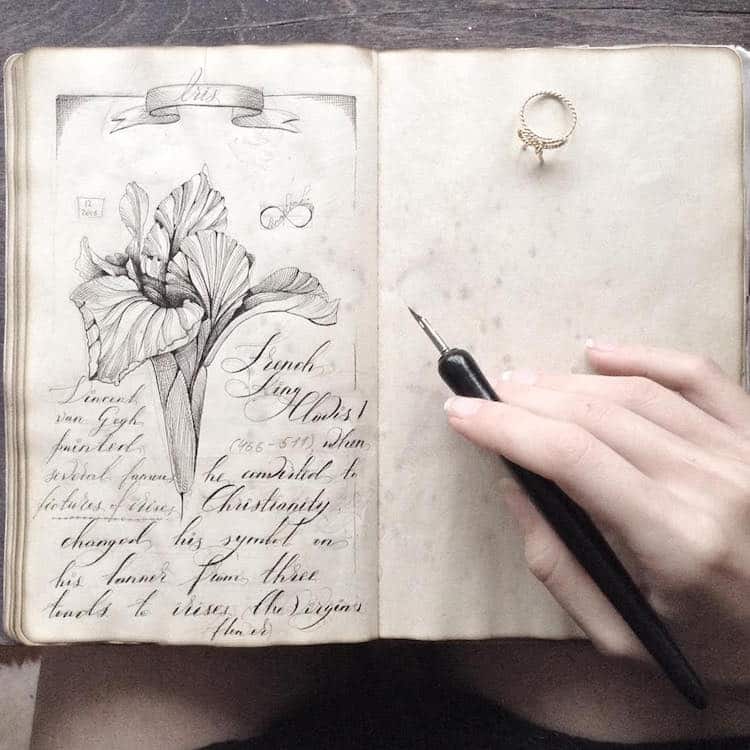 Iris
12
Vincent
van Gogh
painted
several famous
pictures of irises
French
King
Clovis I
(466-511) when
he converted to
Christianity,
changed his symbol on
his banner from three
toads to irises (the Virgin's
flower)